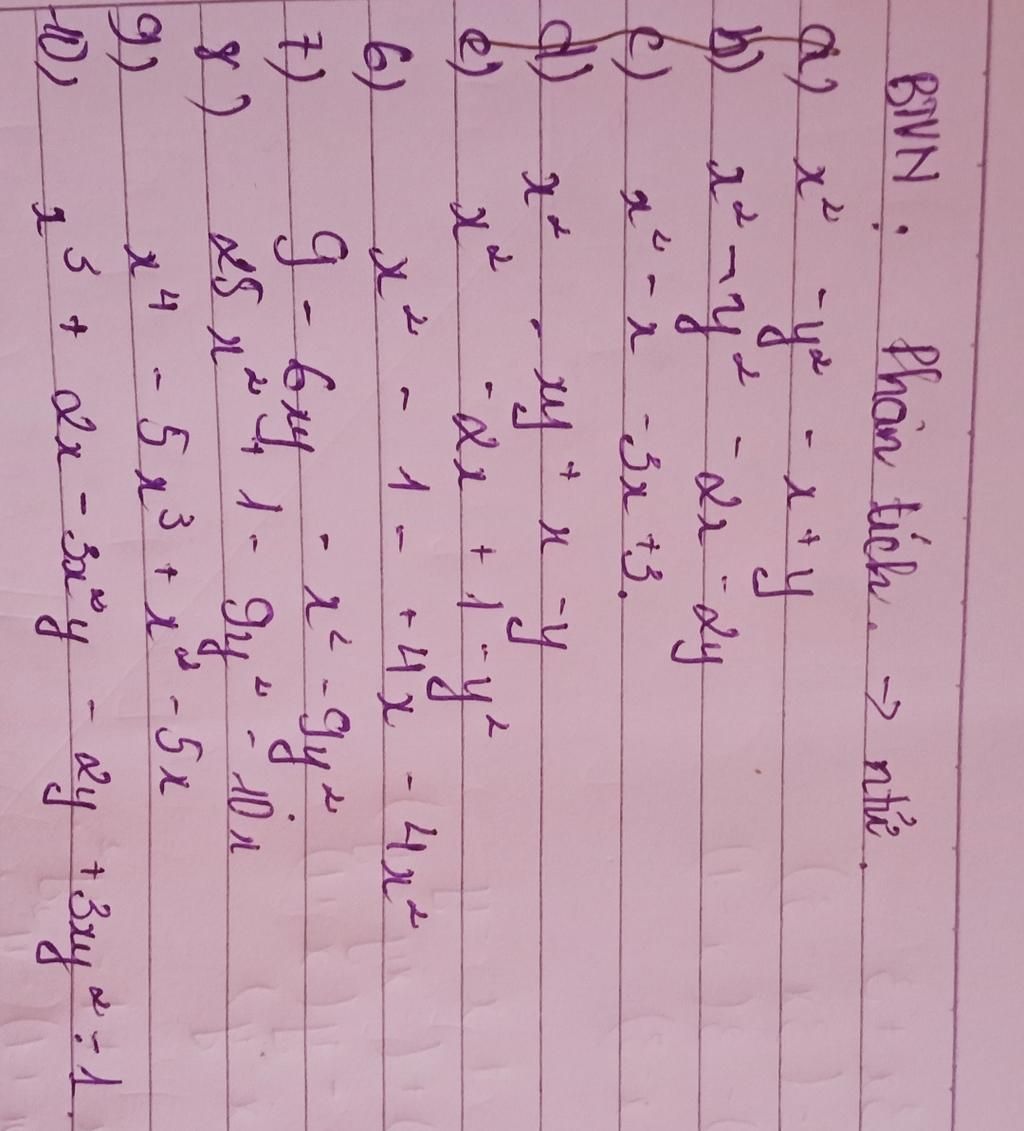 BTVN : Phân tích. → ntử.
a) x² - y² - x + y
b) x² - y² - 2x - 2y
c) x² - x - 3x + 3.
d) x² - xy + x - y
e) x² - 2x + 1 - y²
6) x² - 1 - + 4x - 4x²
7) 9 - 6xy - x² - 9y²
8) 25x² + 1 - 9y² - 10x
9) x⁴ - 5x³ + x² - 5x
10) x³ + 2x - 3x²y - 2y + 3xy² - 1.